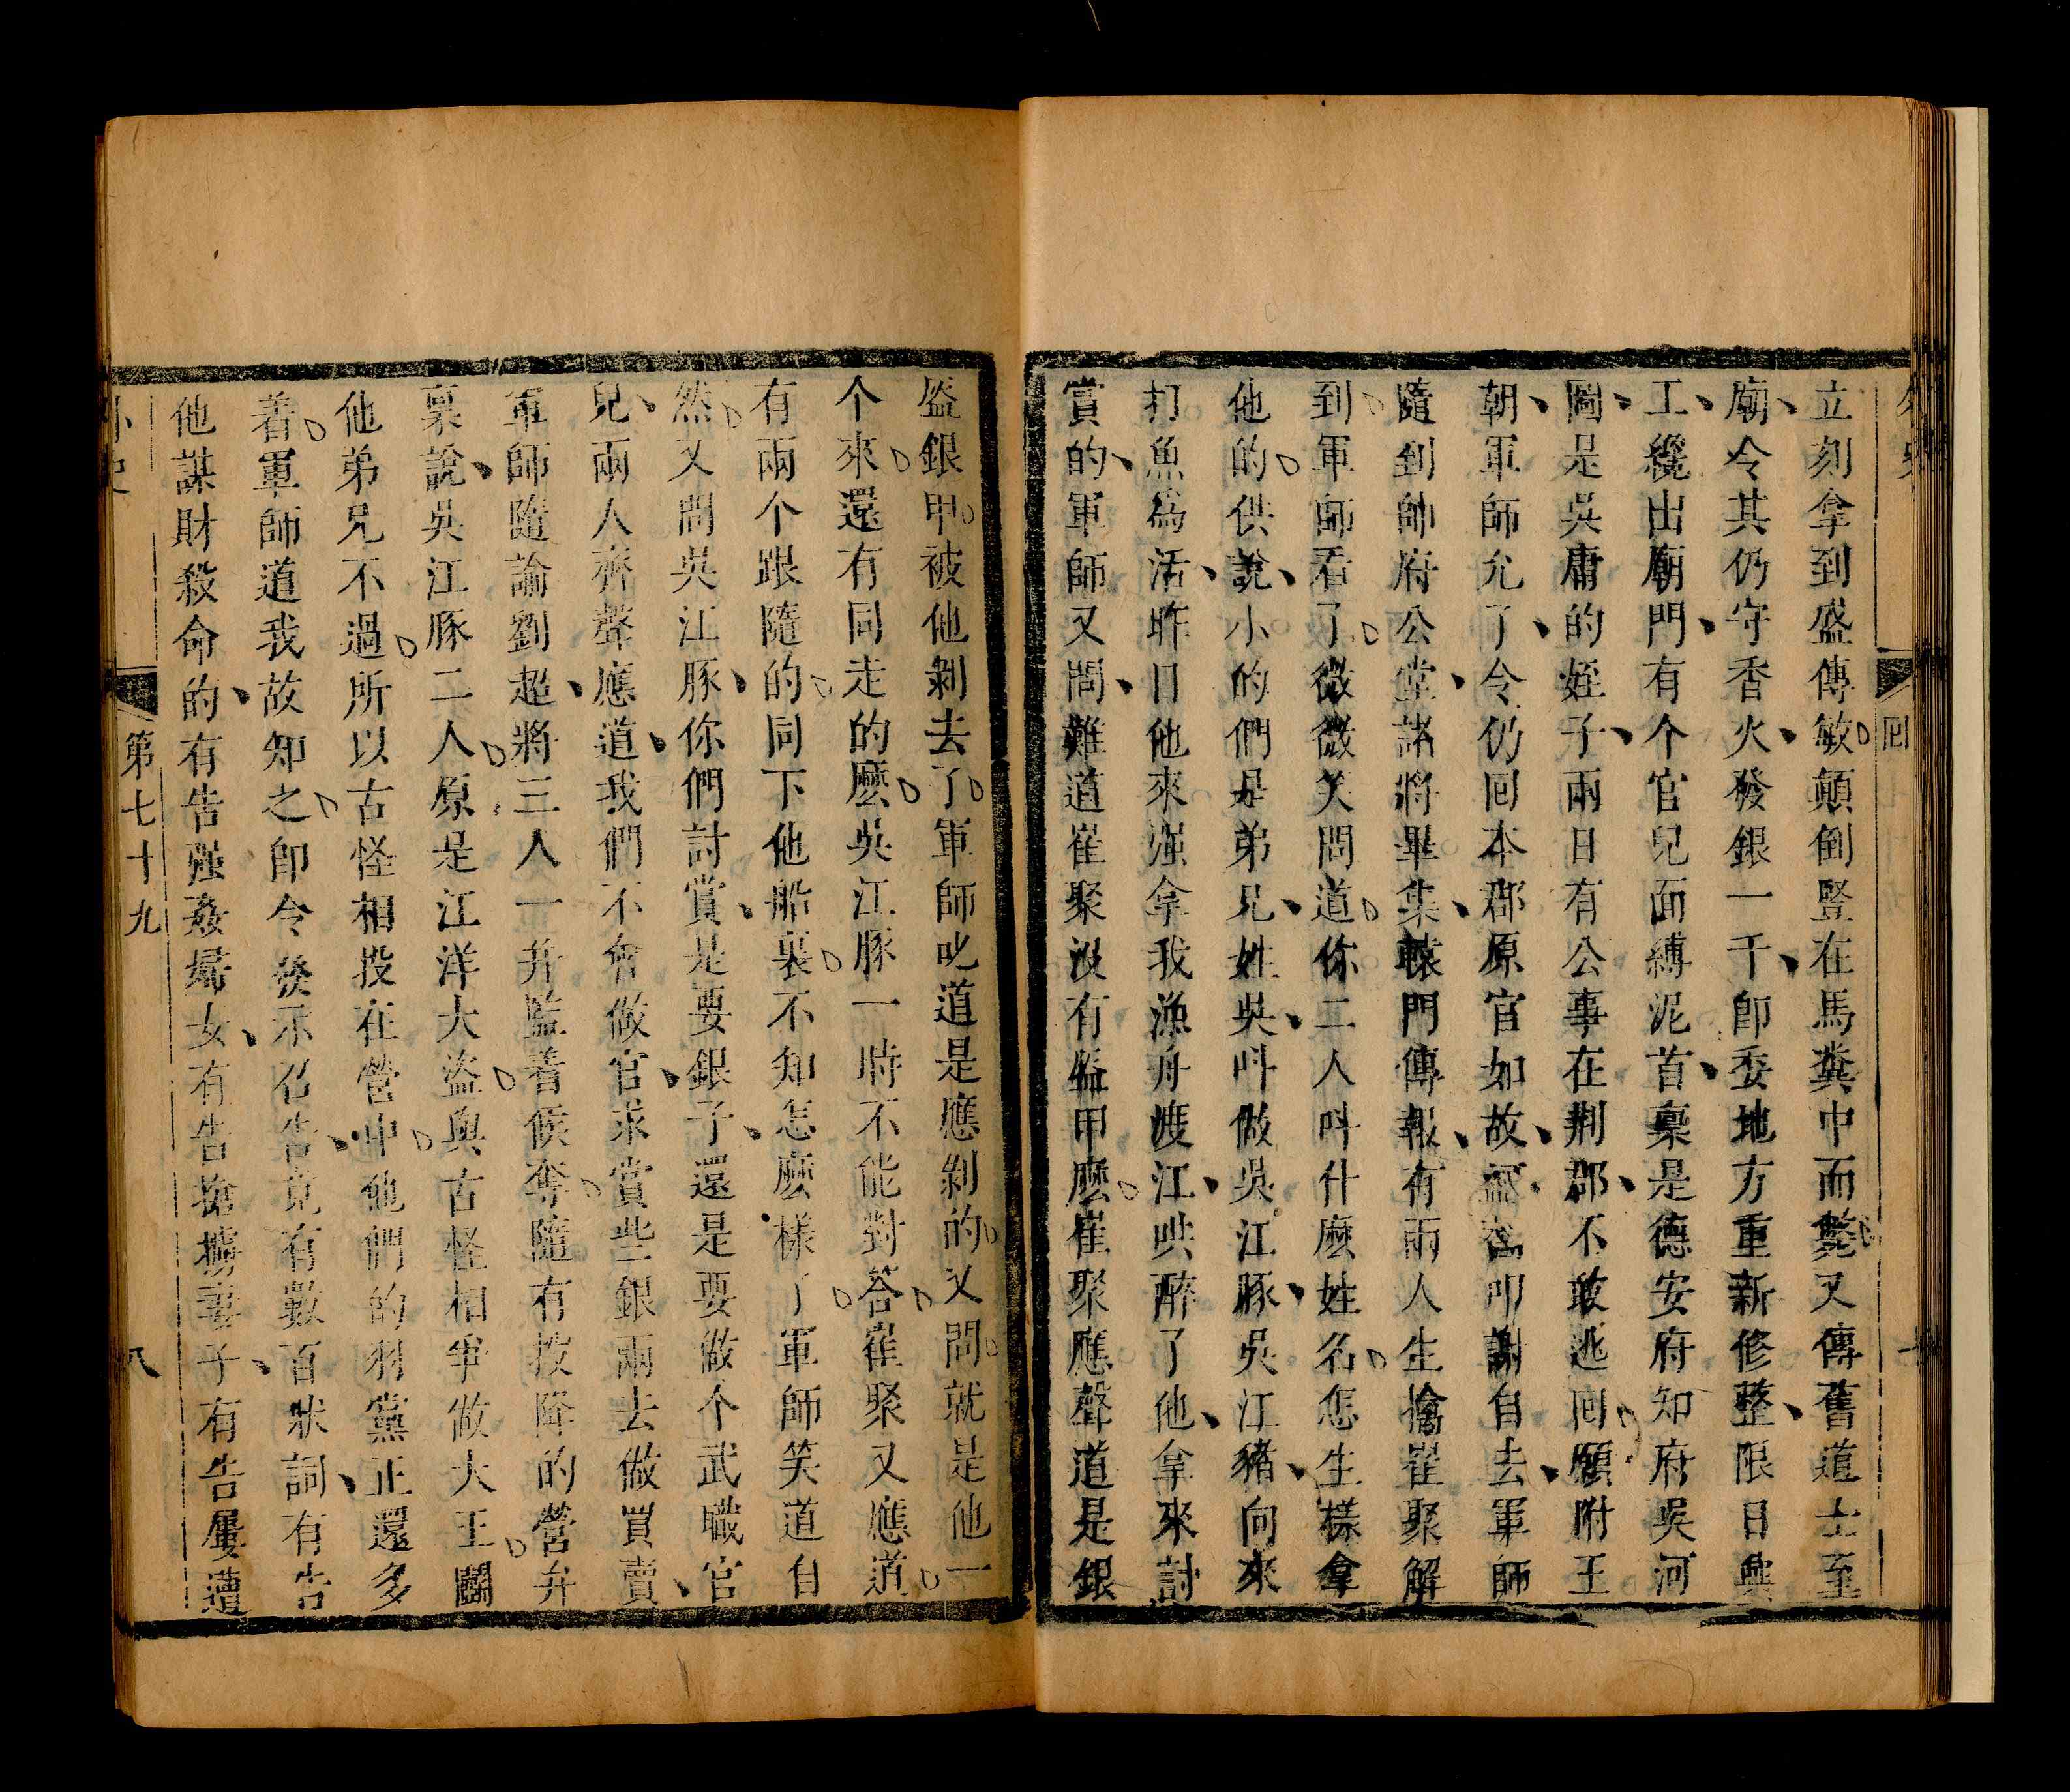 立刻拿到盛傳敏顛倒竪在馬糞中而斃又傳舊道士至
廟令其仍守香火發銀一千卽委地方重新修整限日興
工纔出廟門有个官兒面縛泥首稟是德安府知府吳河
圖是吳庸的姪子兩日有公事在荆郡不敢逃回願附王
朝軍師允了令仍回本郡原官如故叩謝自去軍師
隨到帥府公堂諸將畢集轅門傳報有兩人生擒崔聚解
到軍師看了微微笑問道你二人呌什麽姓名怎生樣拿
他的供說小的們是弟兄姓吳呌做吳江豚吳江豬向來
打魚爲活昨日他來强拿我漁舟渡江哄醉了他拿來討
賞的軍師又問難道崔聚沒有盔甲麽崔聚應聲道是銀
盔銀甲被他剝去了軍師叱道是應剝的又問就是他一
个來還有同走的麽吳江豚一時不能對答崔聚又應道
有兩个跟隨的同下他船裏不知怎麽樣了軍師笑道自
然又問吳江豚你們討賞是要銀子還是要做个武職官
兒兩人齊聲應道我們不會做官求賞些銀兩去做買賣
軍師隨諭劉超將三人一并監着候奪隨有投降的營弁
稟說吳江豚二人原是江洋大盜與古怪相爭做大王鬭
他弟兄不過所以古怪相投在營中他們的羽黨正還多
着軍師道我故知之卽令發示召告竟有數百狀詞有告
他謀財殺命的有告强姦婦女有告搶擄妻子有告屢遭
外史
第七十九
八